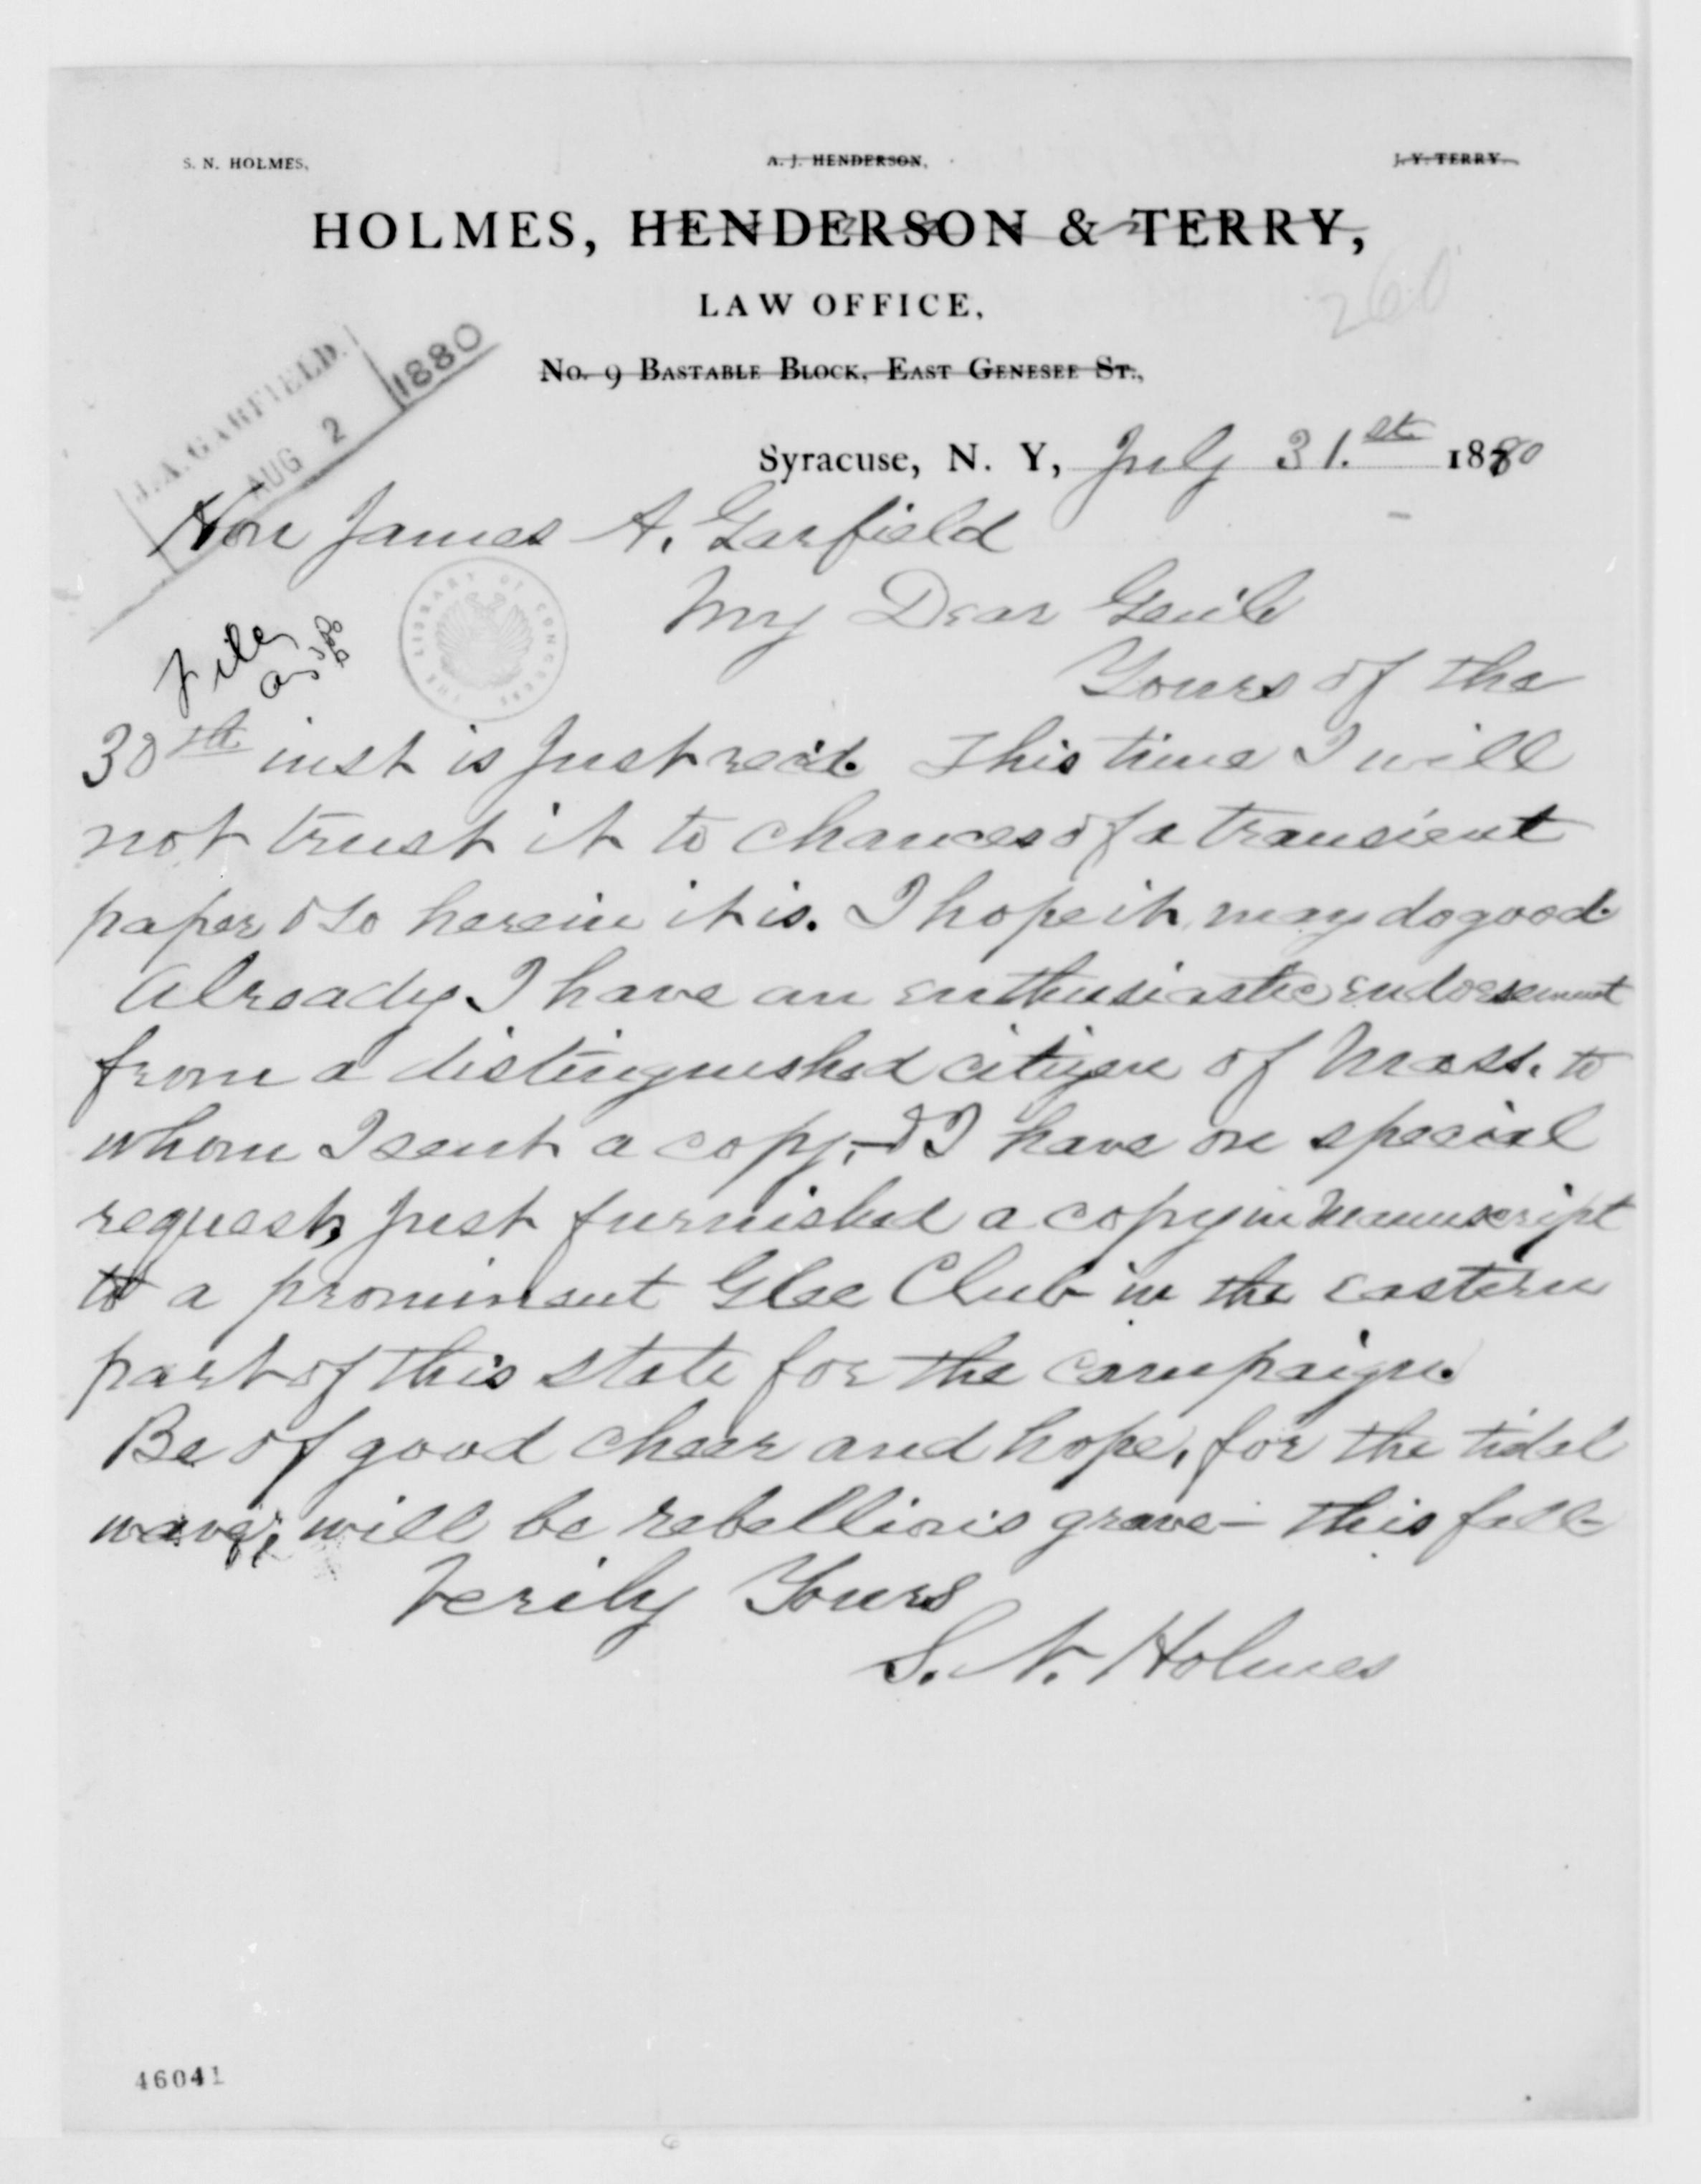 S. N. HOLMES, A. J. HENDERSON, J. Y. TERRY.
HOLMES, HENDERSON & TERRY,
LAW OFFICE,
260
No. 9 BASTABLE BLOCK, EAST GENESEE ST.,
J. A. GARFIELD.
AUG 2 1880
Syracuse, N. Y, July 31.st 1880
Hon James A. Garfield
My Dear Genl
THE LIBRARY OF CONGRESS
File
Yours of the
30th inst is just rec'd. This time I will
not trust it to chances of a transient
paper & so herein it is. I hope it may do good.
Already I have an enthusiastic endorsement
from a distinguished citizen of Mass. to
whom I sent a copy,- & I have on special
request, just furnished a copy in manuscript
to a prominent Glee Club in the eastern
part of this state for the campaign.
Be of good cheer and hope, for the tidal
wave, will be rebellion's grave - this fall-
Verily Yours
S. N. Holmes
46041